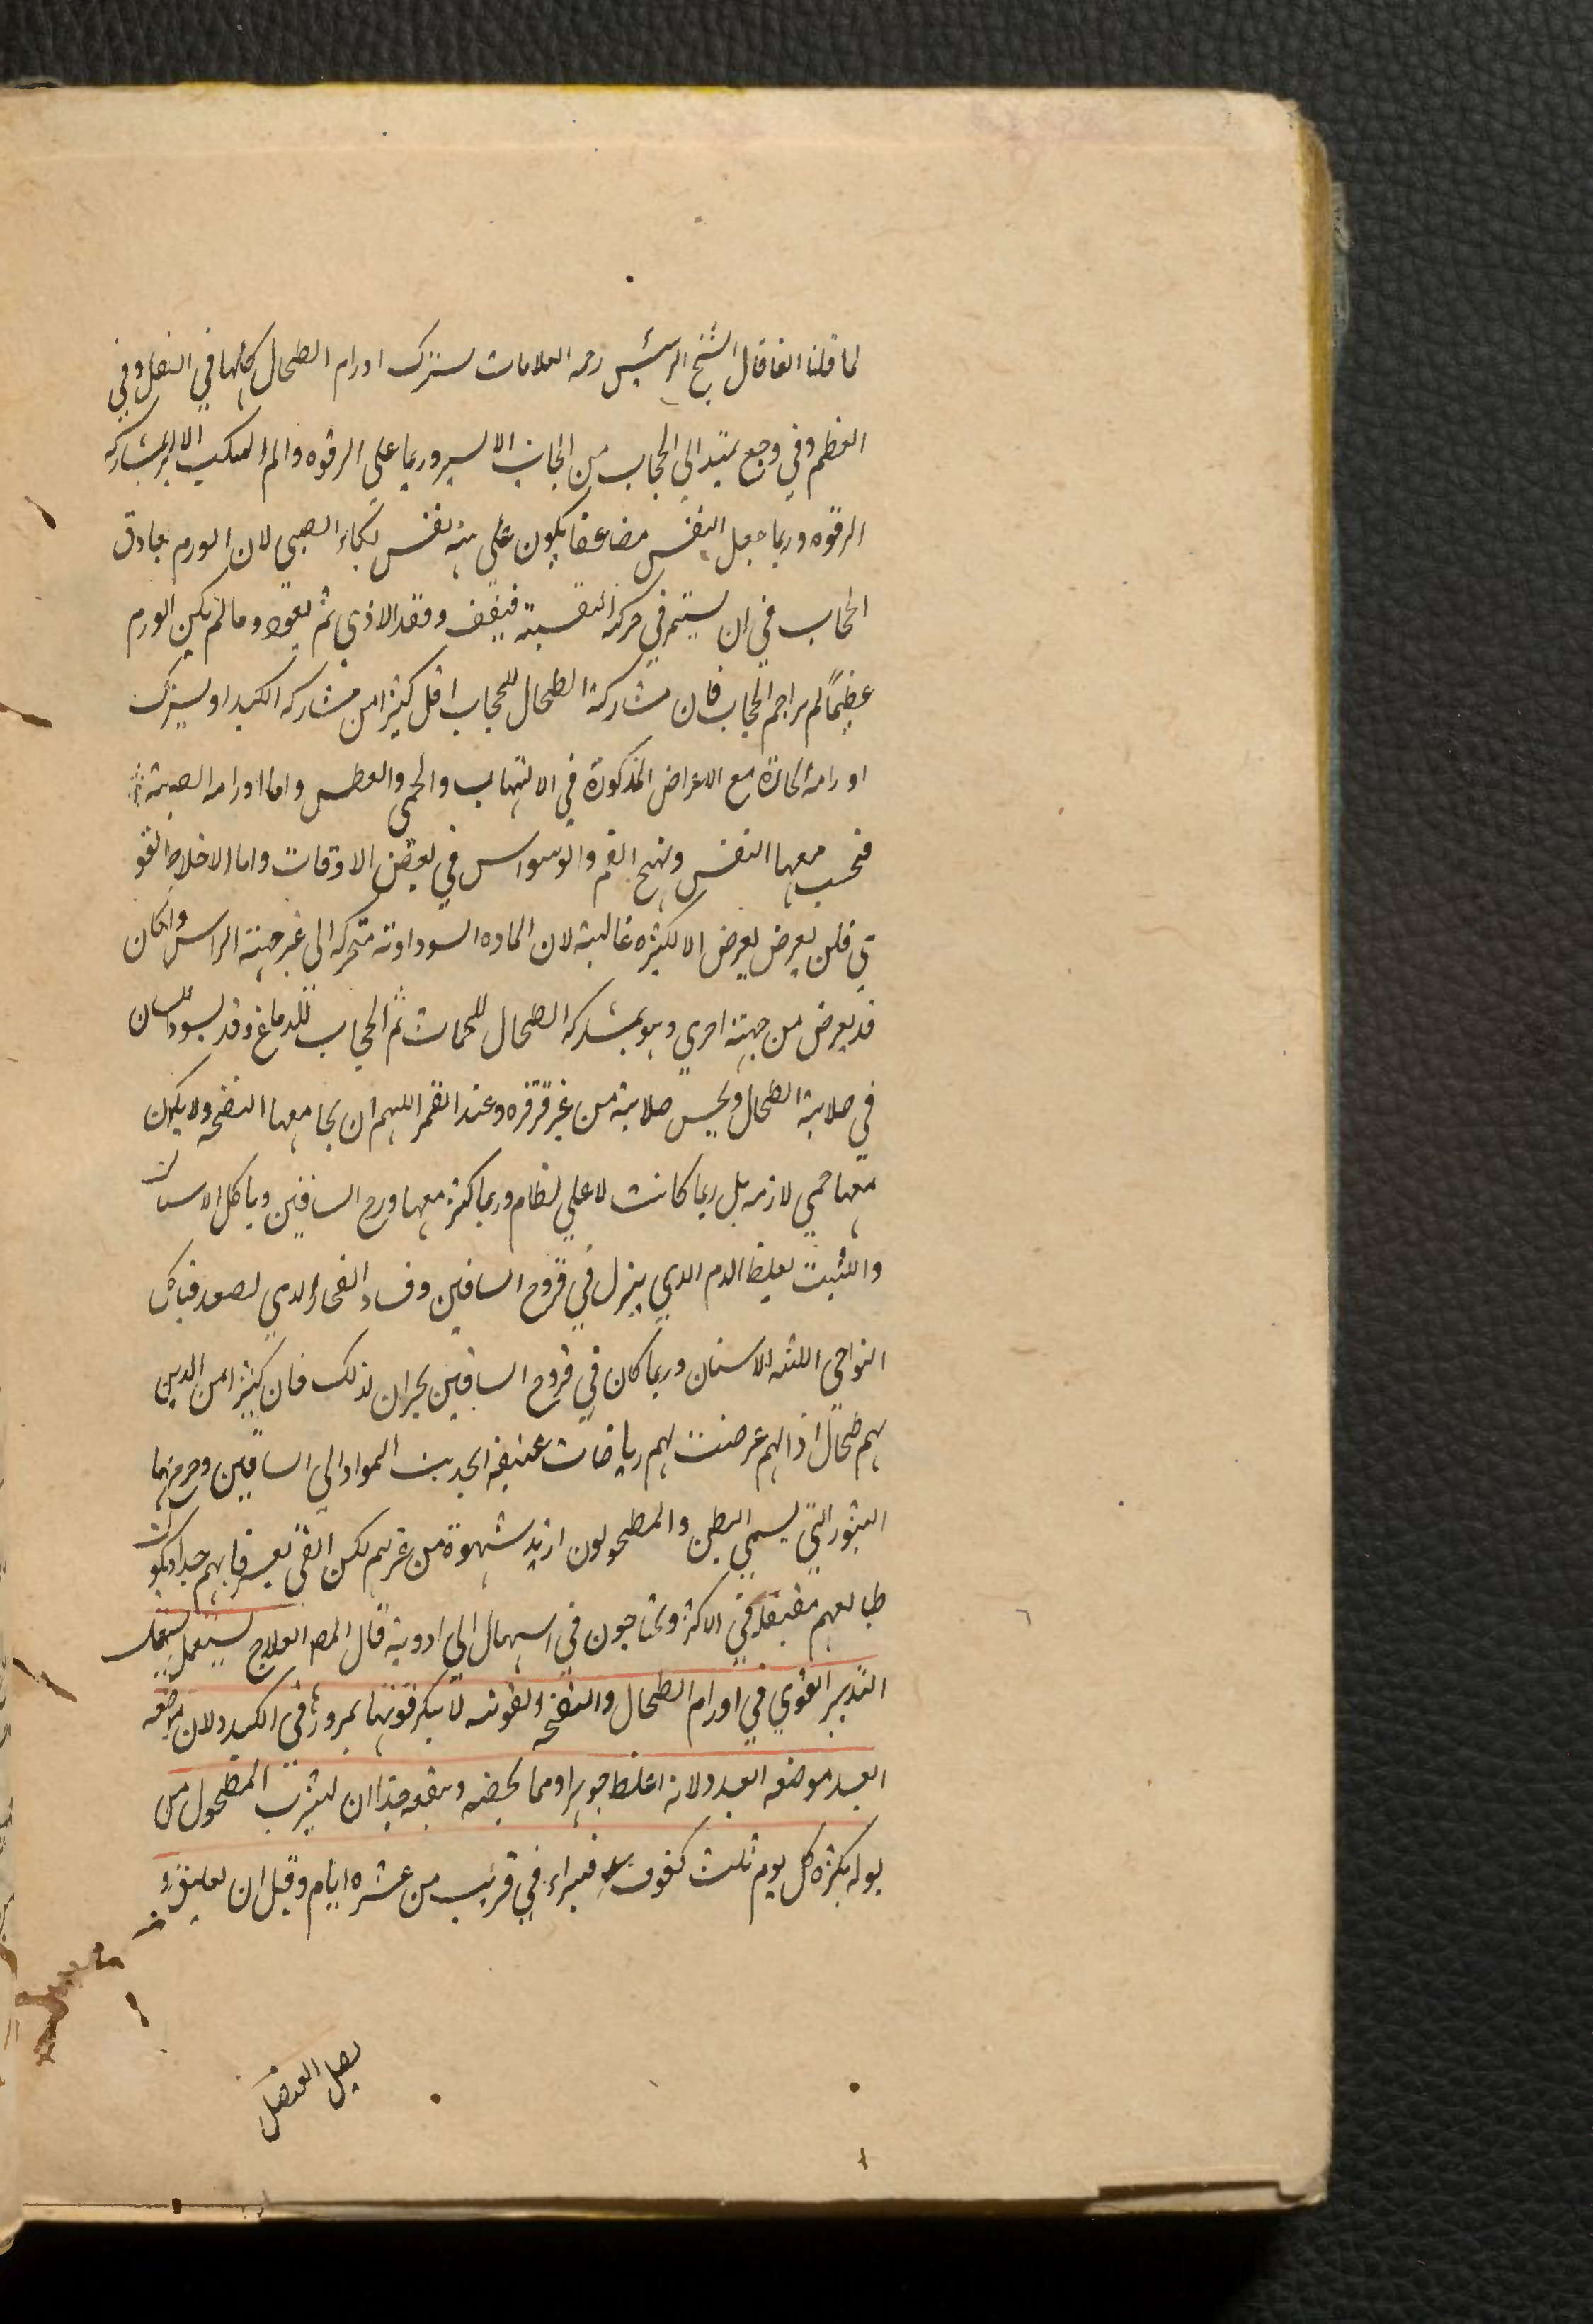 لما قلنا انفا قال الشيخ الرئيس رحمه العلامات تشترك اورام الطحال كلها في الثقل وفي
العظم وفي وجع يمتد الى الحجاب من الجانب الايسر وربما على الترقوه والم المنكب الايسر بمشاركه
الترقوه وربما جعل النفس مضاعفا يكون على هيئة نفس بكاء الصبى لان الورم يعاوق
الحجاب في ان يستمر في حركة النفسية فيقف وفقد الاذي ثم يعود وما لم يكن الورم
عظيمًا لم يزاحم الحجاب فان مشاركة الطحال للحجاب اقل كثيرًا من مشاركه الكبد او يشترك
اورامه الحارة مع الاعراض المذكورة في الالتهاب والحمى والعطش واما اورامه الصلبة
فيحسب معها النفس ويهيج الغم والوسواس في بعض الاوقات واما الاختلاط القو
ي فلن يعرض يعرض الا لكثرة غالبية لان الماده السوداوية متحركه الى غير جهته الراس وان كان
قد يعرض من جهته اخري وهو بمشاركه الطحال للحجاب ثم الحجاب للدماغ وقد يسود اللسان
في صلابة الطحال ويحس صلابته من غير قرقره وعند الغمز اللهم ان يجامعها النفخه ولا يكون
معها حمي لازمه بل ربما كانت لا على نظام وربما كثرة معها قروح الساقين وياكل الاسنان
واللثيت لغلظ الدم الذي ينزل في قروح الساقين وفساد البخار الذي يصعد فياكل
النواحي اللثه الاسنان وربما كان في قروح الساقين بحران لذلك فان كثيرًا من الذين
بهم طحال اذا لهم عرضت لهم رياضات عنيفه انجدبت المواد الي الساقين وخرج بهما
البثور التي يسمي البطن والمطحولون ازيد شهوة من غيرهم لكن القي يعسر قا بهم جدا ويكون
طبايعهم معتقلة في الاكثر ويحتاجون في اسهال الي ادوية قال المص العلاج يستعمل
التدبير القوي في اورام الطحال والنفخه ولقوته لا ينكر قوتها بمرورها في الكبد ولان موضعه
ابعد موضعه ابعد ولانه اغلظ جوهرا ومما يخصه وينفعه جدًا ان يشرب المطحول من
بوله بكرة كل يوم ثلث كفوف فيبراء في قريب من عشره ايام وقيل ان تعليق و
بصل العنصل